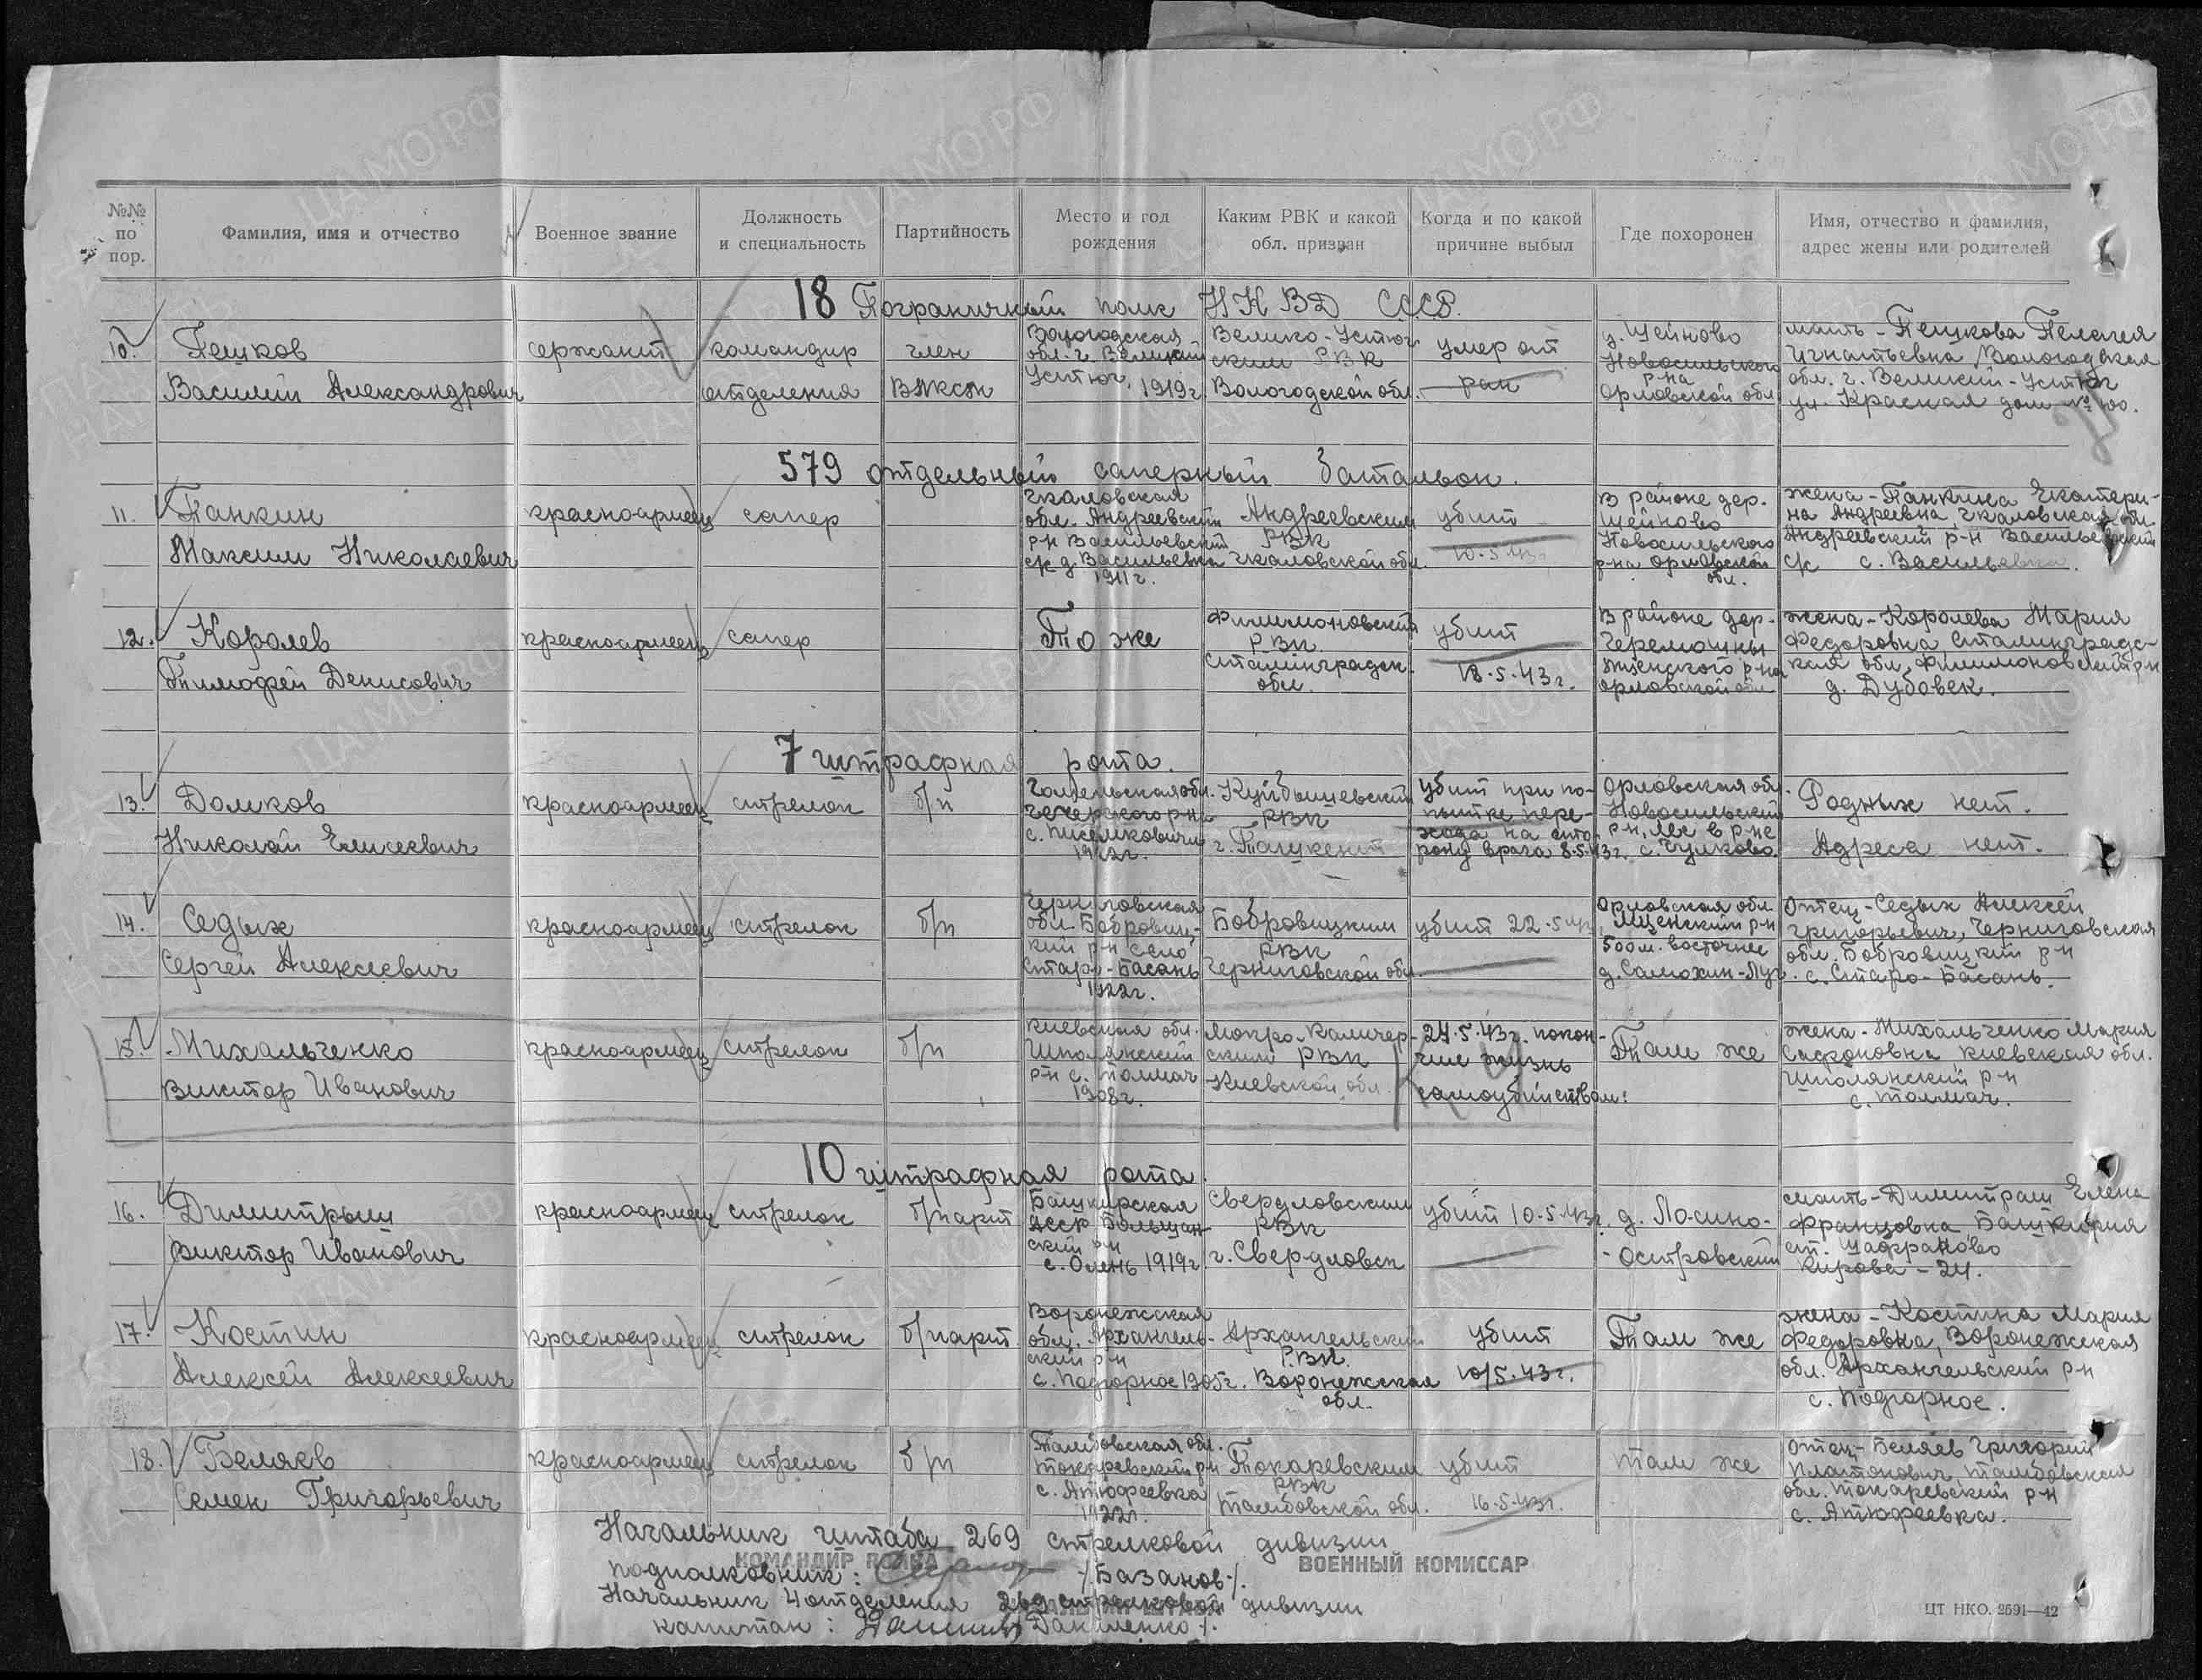 №№ по пор.
Фамилия, имя и отчество
Военное звание
Должность и специальность
Партийность
Место и год рождения
Каким РВК и какой обл. призван
Когда и по какой причине выбыл
Где похоронен
Имя, отчество и фамилия, адрес жены или родителей
18 Пограничный полк НКВД СССР.
10.
Пешков
Василий Александрович
сержант
командир
отделения
член
ВЛКСМ
Вологодская
обл. г. Великий
Устюг. 1919г
Велико-Устюг
ским РВК
Вологодской обл.
умер от
ран
Новосильского
р-на
Орловской обл
мать - Пешкова Пелагея
Игнатьевна Вологодская
обл. г. Великий-Устюг
ул. Красная дом № 100.
579 отдельный саперный батальон.
11.
Панкин
Максим Николаевич
красноармеец
сапер
Чкаловская
обл. Андреевский
р-н Васильевский
с/с д. Васильевка
1911г.
Андреевским
РВК
Чкаловской обл.
убит
10.5.43г
В районе дер.
Шейново
Новосильского
р-на Орловской
обл.
жена - Панкина Екатери-
на Андреевна, Чкаловская обл.
Андреевский р-н Васильевский
с/с с. Васильевка.
12.
Королев
Тимофей Денисович
красноармеец
сапер
То же
Филимоновский
РВК
Сталинградск.
обл.
убит
18.5.43г.
В районе дер.
Черемошны
Мценского р-на
Орловской обл
жена - Королева Мария
Федоровна, Сталинградс-
кая обл, Филимоновский р-н
д. Дубовек.
7 штрафная рота.
13.
Домков
Николай Елисеевич
красноармеец
стрелок
б/п
Гомельская обл.
Чечерского р-на
1922г.
Куйбышевский
РВК
г. Ташкент
убит при по-
пытке пере-
хода на сто-
рону врага 8.5.43г.
Орловская обл
Новосильский
р-н, лес в р-не
с. Чулково.
Родных нет.
Адреса нет.
14.
Седых
Сергей Алексеевич
красноармеец
стрелок
б/п
Черниговская
обл. Бобровиц-
кий р-н село
Старо-Басань
1922г.
Бобровицким
РВК
Черниговской обл.
убит 22.5.43
Орловская обл.
Мценский р-н
500м. восточнее
д. Самохин-Луг.
Отец - Седых Алексей
Григорьевич, Черниговская
обл. Бобровицкий р-н
с. Старо-Басань.
15.
Михальченко
Виктор Иванович
красноармеец
стрелок
б/п
Киевская обл.
Шполянский
р-н с. Толмач
1908г.
Мокро-Калигор-
ским РВК
Киевской обл.
24.5.43г. покон-
чил жизнь
самоубийством.
Там же
жена - Михальченко Мария
Сафоновна, Киевская обл.
Шполянский р-н
с. Толмач.
10 штрафная рота.
16.
Димитрыш
Виктор Иванович
красноармеец
стрелок
б/парт
Башкирская
АССР
ский р-н
1919г
Свердловским
РВК
г. Свердловск
убит 10.5.43г.
д. Лосино-
-островский
мать - Димитраш Елена
Францовна, Башкирия
ст. Шафраново
Кирова - 24.
17.
Костин
Алексей Алексеевич
красноармеец
стрелок
б/парт.
Воронежская
обл. Архангель-
ский р-н
с. Подгорное 1905г.
Архангельский
РВК.
Воронежская
обл.
убит
10/5.43г.
Там же
жена - Костина Мария
Федоровна, Воронежская
обл. Архангельский р-н
с. Подгорное.
18.
Беляев
Семен Григорьевич
красноармеец
стрелок
б/п
Тамбовская обл.
Токаревский р-н
с. Атюфеевка
1922г.
Токаревским
РВК
Тамбовской обл.
убит
16.5.43г.
там же
Отец - Беляев Григорий
Платонович, Тамбовская
обл. Токаревский р-н
с. Атюфеевка.
Начальник штаба 269 стрелковой дивизии
КОМАНДИР ПОЛКА
ВОЕННЫЙ КОМИССАР
подполковник: /Базанов/.
Начальник 4 отделения 269 стрелковой дивизии
НАЧАЛЬНИК ШТАБА
капитан: /Даниленко/.
ЦТ НКО. 2591—42
ЦАМО.РФ